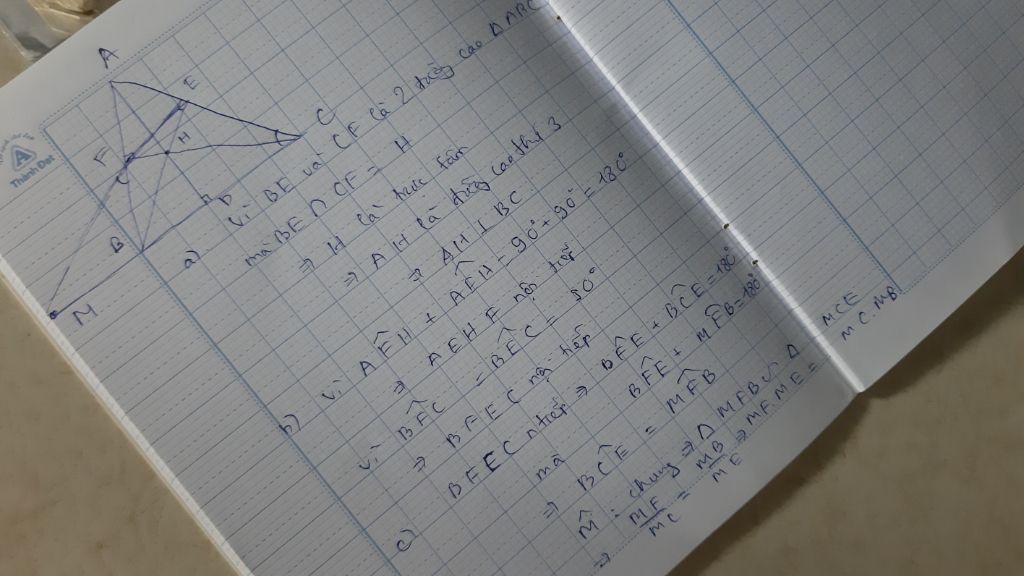 A
E
F
H
C
D
B
M
Thành Đạt
a) Vì BE và CF là 2 đường cao Δ ABC
mà BE ∩ CF = H
⇒ H là trực tâm
⇒ AH là đường cao thứ 3
⇒ AH ⊥ BC
b) Vì AF̂H + AÊH = 90° + 90° = 180°
⇒ AEHF nội tiếp
Vì BF̂C = BÊC = 90°
⇒ BFEC nội tiếp
c) BFEC n tiếp ⇒ BF̂E + BĈE = 180°
mà BF̂E + MF̂B = 180°
⇒ BĈE = MF̂B
M̂ : chung ⇒ Δ MFB ∽ Δ MCE
⇒ MF/MC = MB/ME ⇒ MF ME = MC.MB